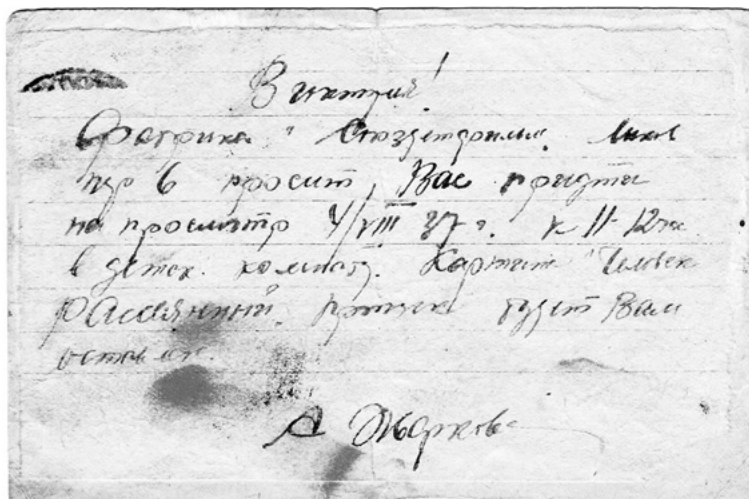 Виктрия!
Фабрика "Союздетфильм"
пер 6 просит, Вас придти
на просмотр 4/VIII 37 г. к 11-12 ч
в детск. комнату. Картина "Человек
Рассеянный" пропуск будет Вам
оставлен.
А Жаркова